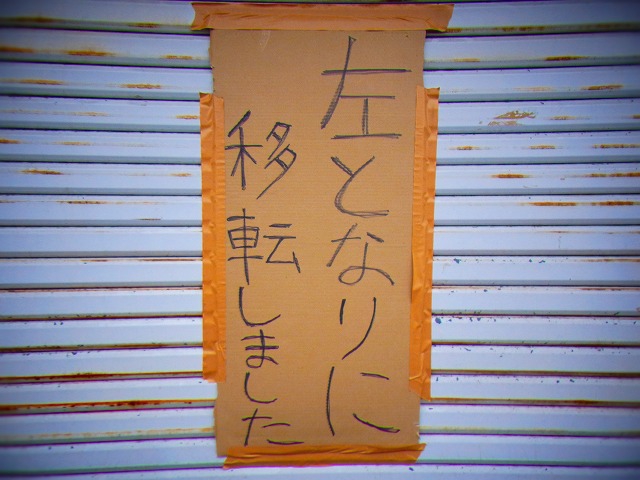 左となりに
移転しました